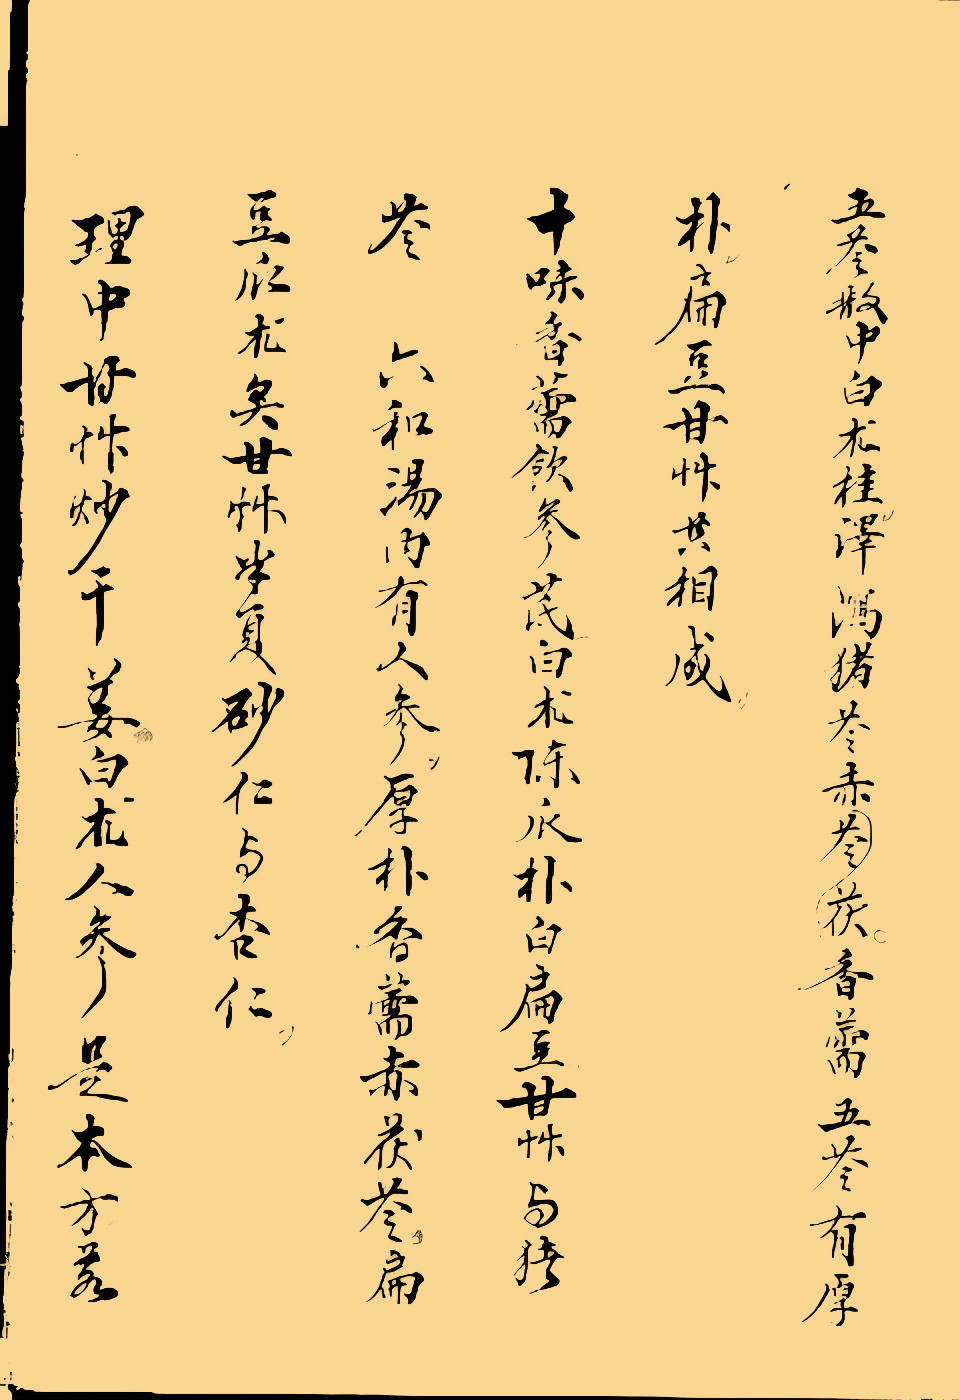 五苓散中白朮桂澤瀉猪苓赤苓茯香薷五苓有厚
朴扁豆甘艸共相咸
十味香薷飲参芪白朮陳瓜朴白扁豆甘艸与猪
苓 六和湯内有人参厚朴香薷赤茯苓扁
豆瓜朮矣甘艸半夏砂仁与杏仁
理中甘艸炒干姜白朮人参是本方若